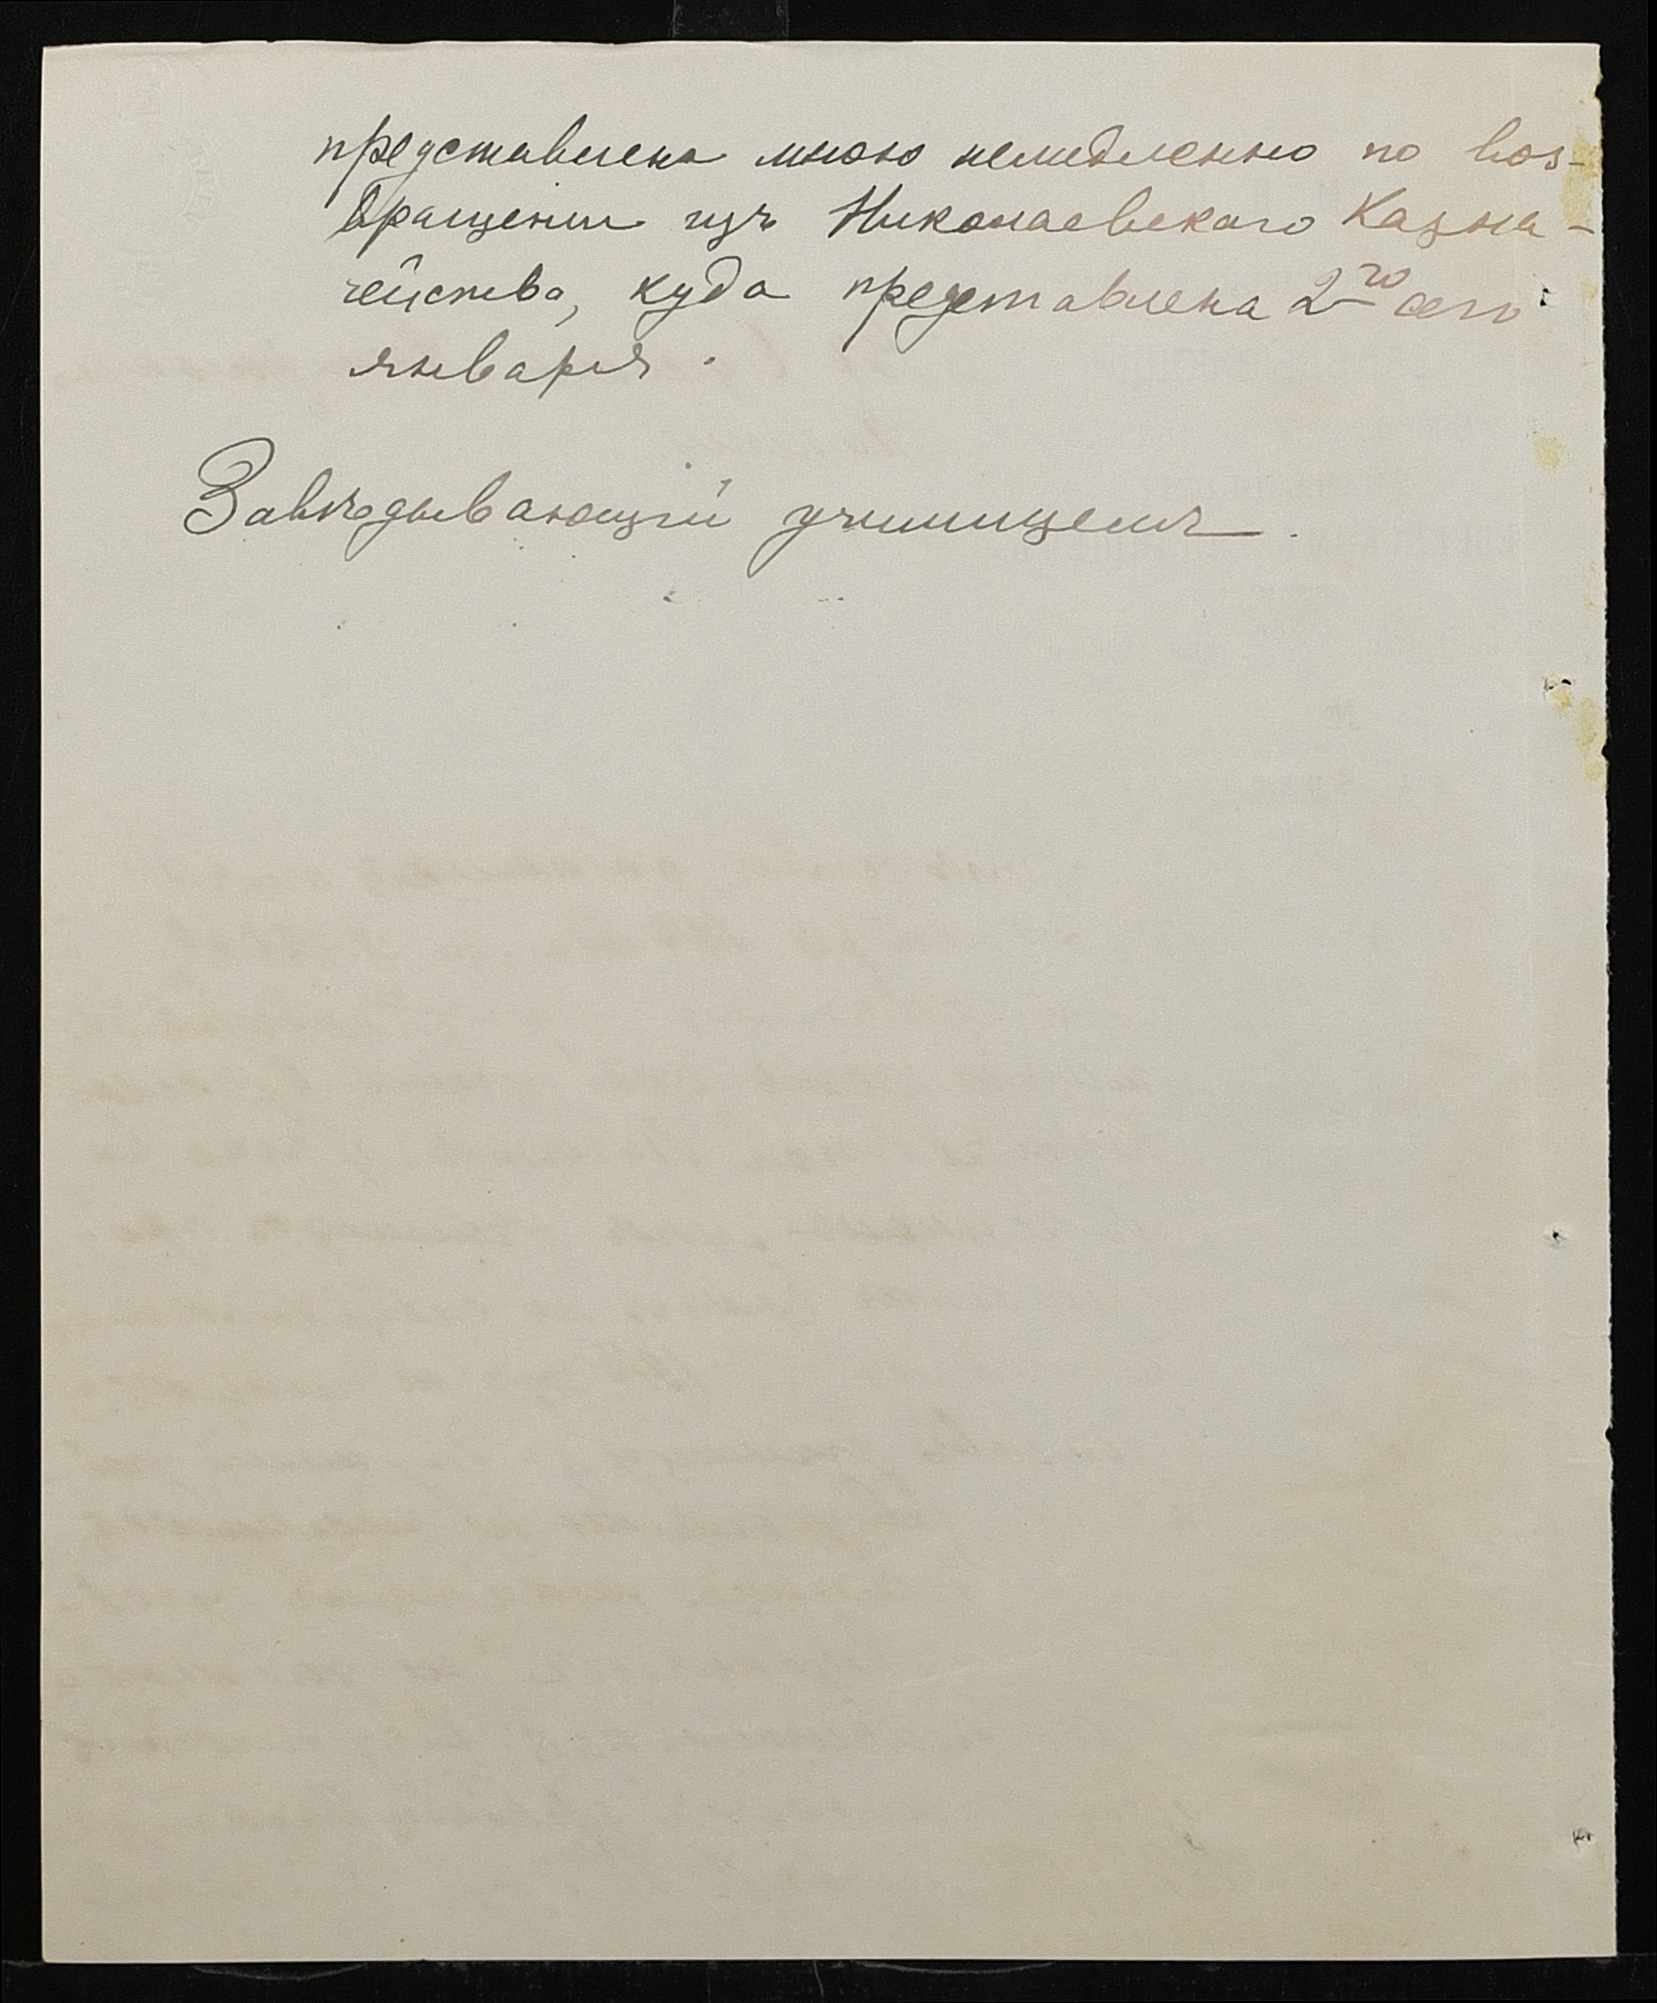 представлена мною немедленно по воз-
вращении изъ Николаевскаго Казна-
чейства, куда представлена 2го сего
января.
Завѣдывающій училищемъ